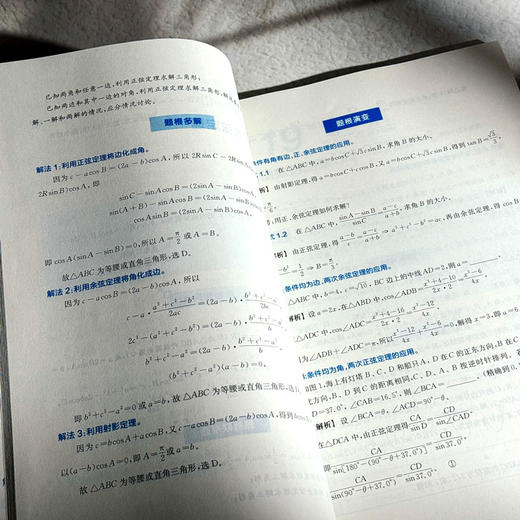 已知两角和任意一边,利用正弦定理求解三角形;
已知两边和其中一边的对角,利用正弦定理求解三角形,解
解、一解和两解的情况,应分情况讨论.
题根多解
解法1:利用正弦定理将边化成角.
因为c-acosB=(2a-b)cosA,所以2RsinC-2R
2RsinB)cosA,即
sinC-sinAcosB=(2sinA-sinB)co
sin(A+B)-sinAcosB=(2sinA-sinB)
cosAsinB=(2sinA-sinB)cos
即cosA(sinA-sinB)=0,所以A=π/2或A=B,
故△ABC为等腰或直角三角形,选D.
解法2:利用余弦定理将角化成边.
因为c-acosB=(2a-b)cosA,所以
c-a·(a²+c²-b²)/2ac=(2a-b)·(b²+c²-
2c²-(a²+c²-b²)=(2a-b)·(b²+c²-
b²+c²-a²=(2a-b)·(b²+c²-
(b²+c²-a²)(a-b)=0,
即b²+c²-a²=0或a=b,故△ABC为等腰或直角三角形,
解法3:利用射影定理.
因为c=bcosA+acosB,又c-acosB=(2a-b)cosA,得到
以(a-b)cosA=0,即A=π/2或a=b.
故△ABC为等腰或直角三角形,选D.
题根演变
条件有角有边,正、余弦定理的应用.
1.1 在△ABC中,a=bcosC+√3csinB,求角B的大小.
析】由射影定理,得a=bcosC+ccosB,又a=bcosC+√3csinB,得到tanB=√3/3,
,用正、余弦定理如何求解?
式1.2 在△ABC中,(sinA-sinB)/sinC=(a-c)/(a+b),求角B的大小.
析】由正弦定理,得(a-b)/c=(a-c)/(a+b)⇒a²+c²-b²=ac,再由余弦定理,得cosB
-b²=1/2⇒B=π/3.
条件均为边,两次余弦定理的应用.
△ABC中,b=4,c=√10,BC边上的中线AD=2,则a=
解析】设a=2x,在△ABD中,cos∠ADB=(x²+4-10)/(2x·2)=(x²-6)/4x,
△ADC中,cos∠ADC=(x²+4-16)/(2x·2)=(x²-12)/4x.
为∠ADB+∠ADC=π,所以(x²-12)/4x+(x²-6)/4x=0,解得x=3,即a=6
:条件均为角,两次正弦定理的应用.
如图1,海上有灯塔B、C、D和船只A,D在C的正东方向,B在C
北方向,B、D到C的距离相同,C、D、A、B按逆时针排列,
D=37.0°,∠CAB=16.5°,则∠BCA=
解析】设∠BCA=θ,∠ACD=90°-θ.
在△DCA中,由正弦定理得CA/sinD=CD/sin∠CAD.
即CA/sin[180°-(90°-θ+37.0°)]=CD/sin37.0°,
CA/sin(90°-θ+37.0°)=CD/sin37.0°. ①